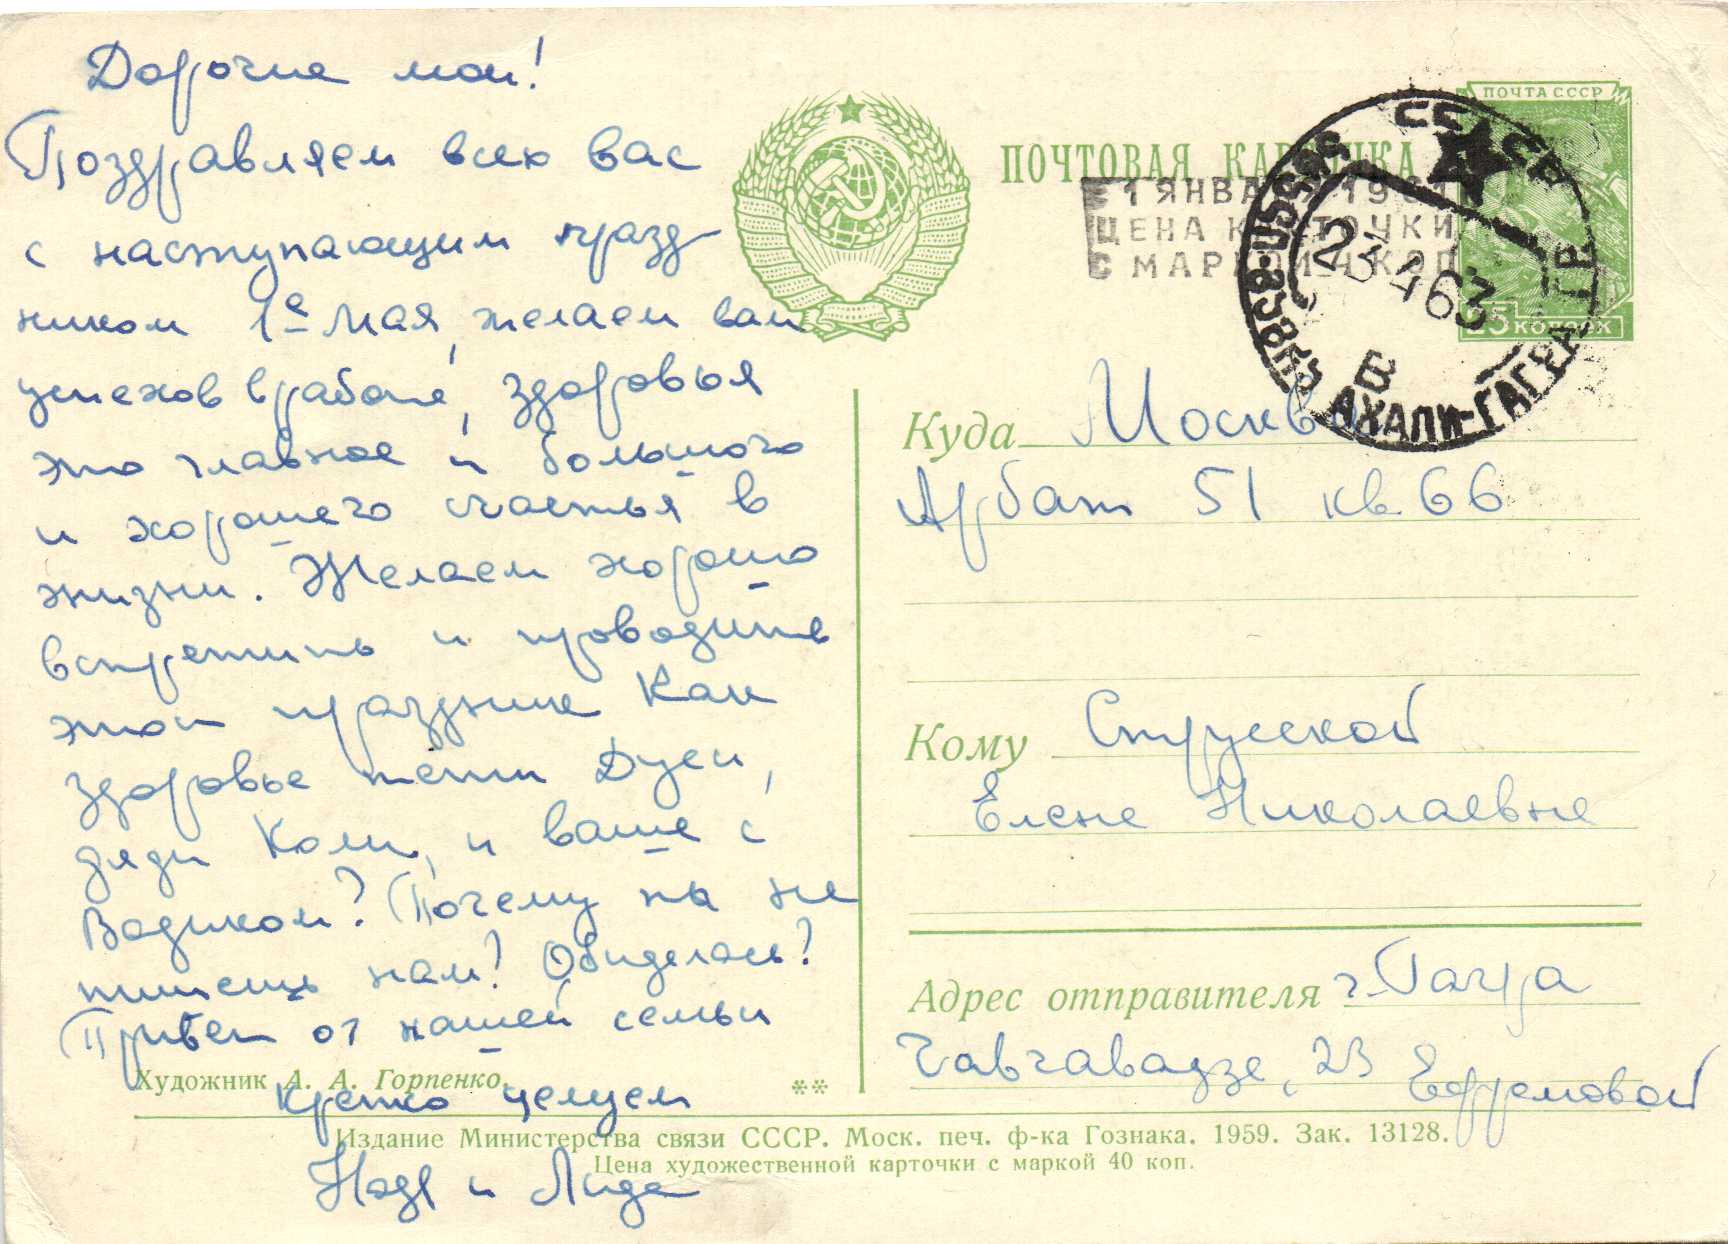 Дорогие мои!
Поздравляем всех вас
с наступающим празд
ником 1е Мая, желаем вам
успехов в работе, здоровья
это главное и большого
и хорошего счастья в
жизни. Желаем хорошо
встретить и проводить
этот праздник Как
здоровье тети Дуси,
дяди Коли, и ваше с
Вадиком? Почему ты не
пишешь нам? Обиделась?
Привет от нашей семьи
крепко целуем
и Лида
Художник А. А. Горпенко.
**
ПОЧТОВАЯ КАРТОЧКА
С 1 ЯНВАРЯ 1961
ЦЕНА КАРТОЧКИ
С МАРКОЙ 4 КОП
ПОЧТА СССР
25 КОПЕЕК
СССР
23 4 63
В
АХАЛИ-ГАГРА ГР.
Куда Москва
Арбат 51 кв 66
Кому Струсской
Елене Николаевне
Адрес отправителя г. Гагра
Чавчавадзе, 23 Ефремовой
Издание Министерства связи СССР. Моск. печ. ф-ка Гознака. 1959. Зак. 13128.
Цена художественной карточки с маркой 40 коп.